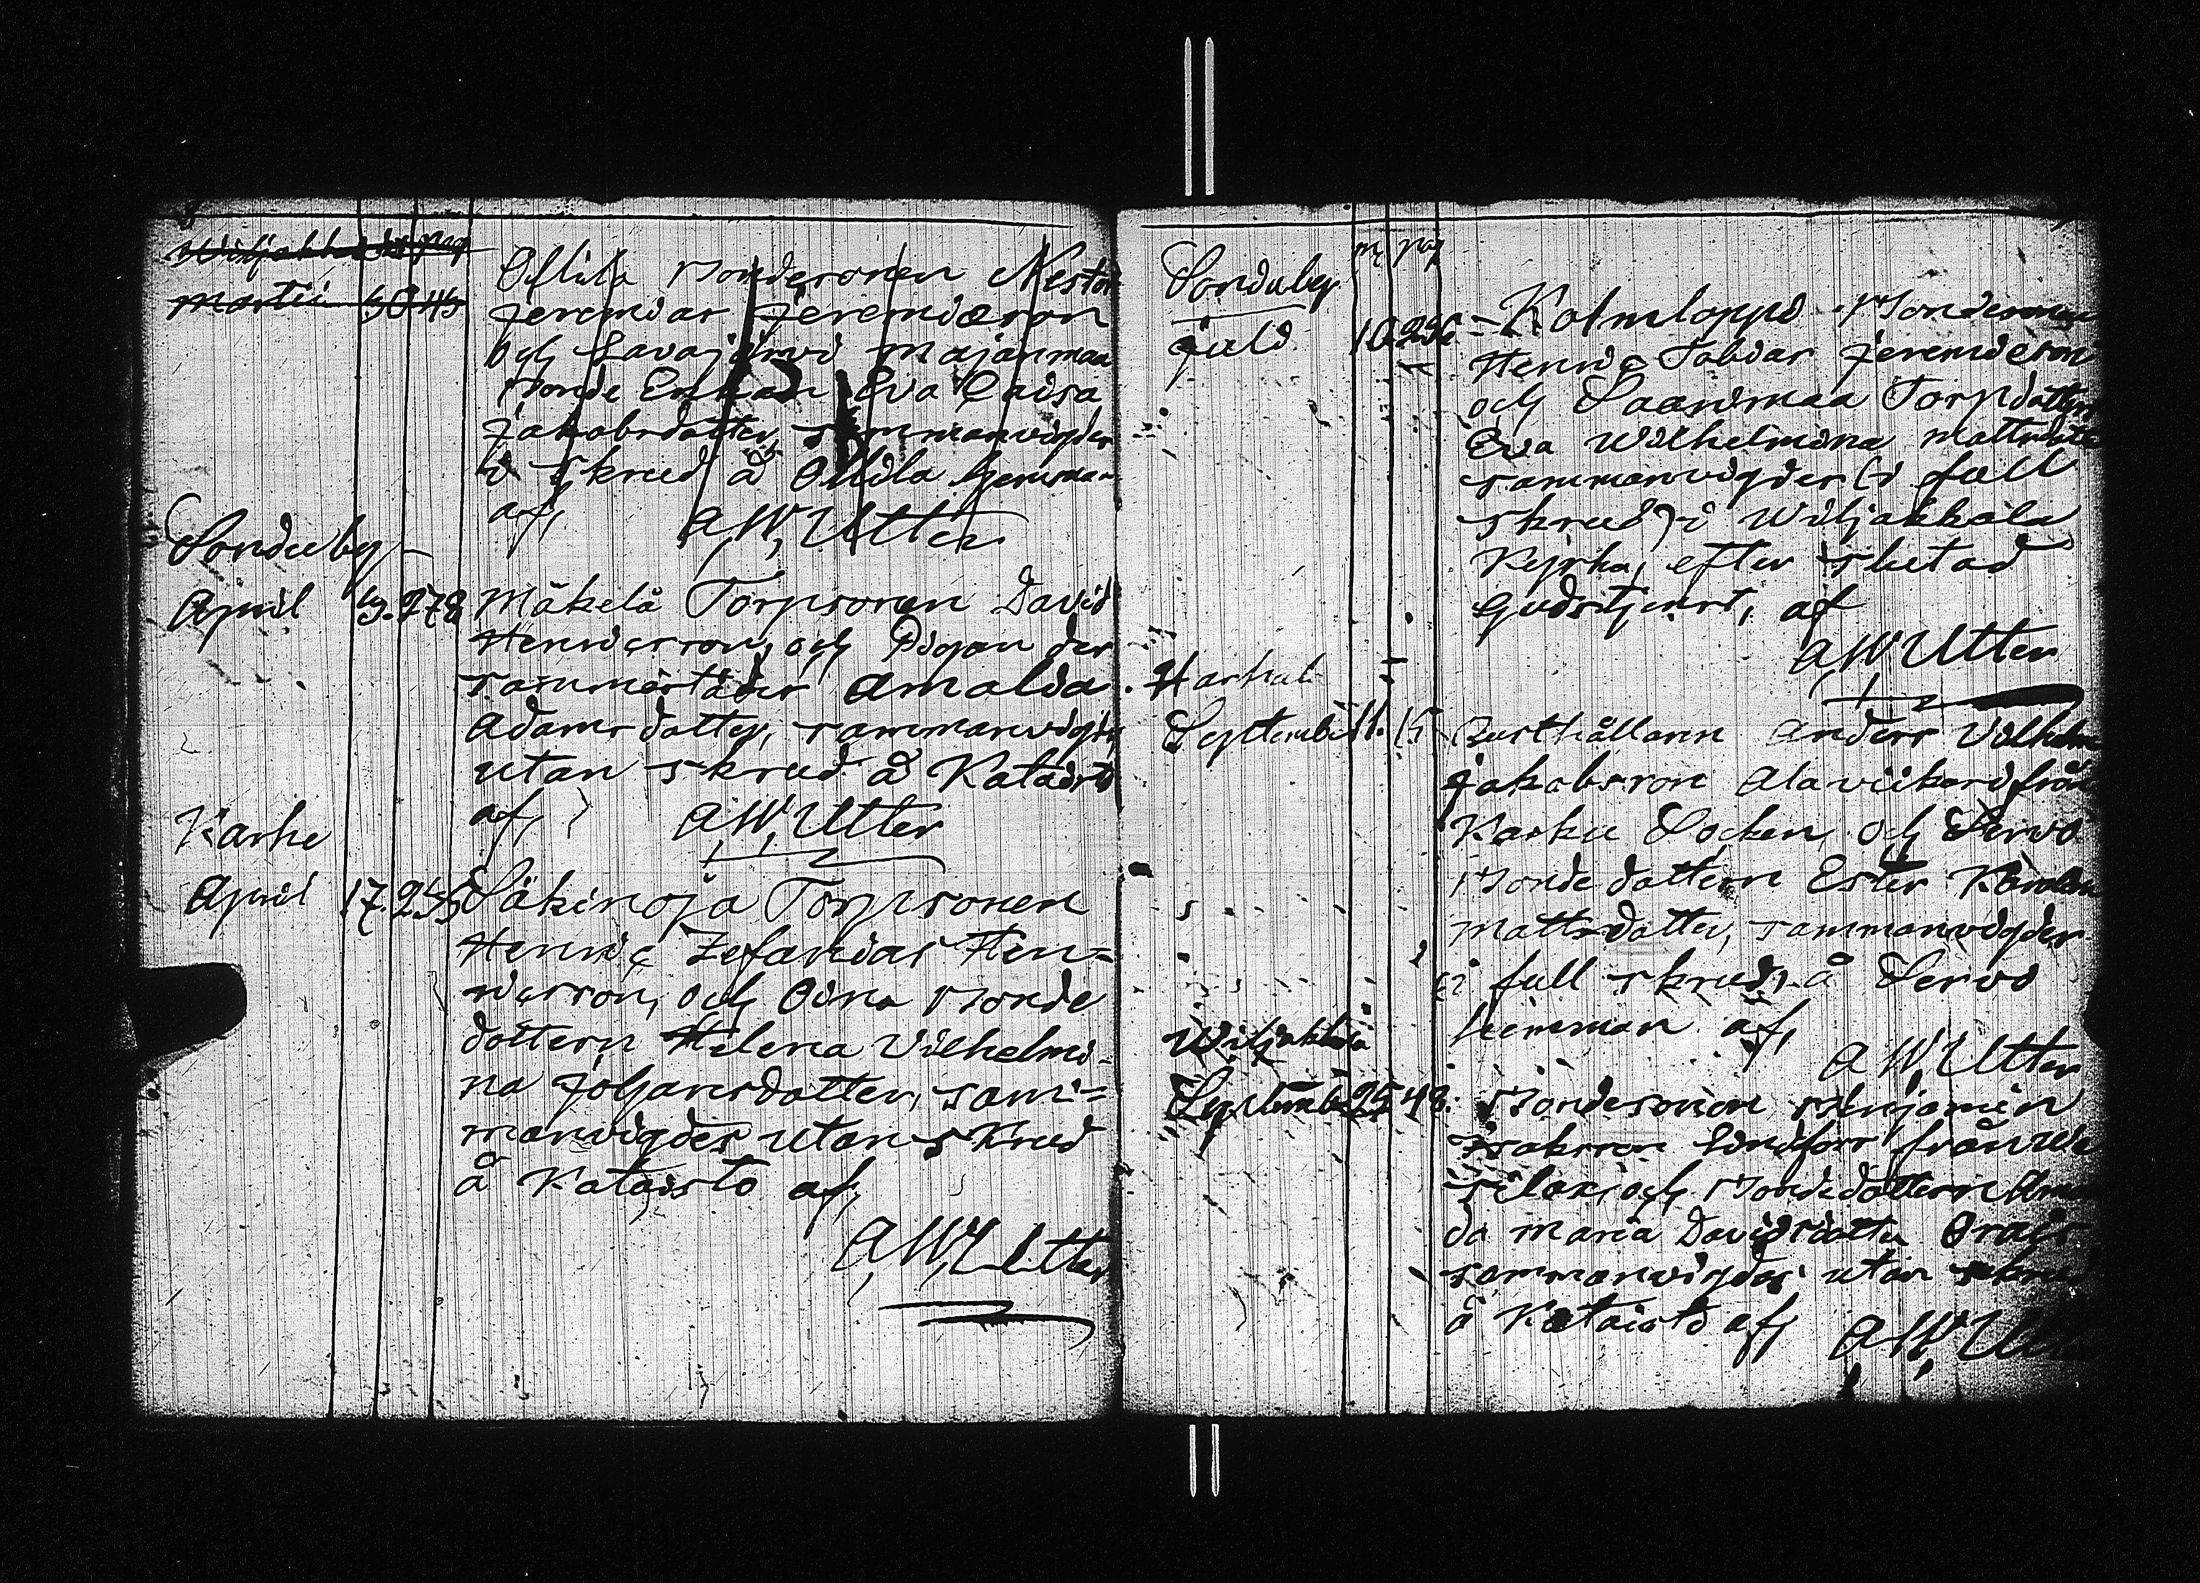 Wiljakkala
Martii 30 45
Ollila Bondesonen Nestor
Jeremias Jeremiæson
och Lavajärvi Majanmaa
Bonde Enkan Eva Caisa
Jakobsdotter, sammanvigdes
i skrud å Ollila hemman
af, A, W, Utter
Sonduby
April 9. 278
Mäkelä Torpsonen David
Henricsson, och Pigan der
sammastädes Amalda
Adamsdotter, sammanvigdes
utan skrud å Kataisto
af, A, W, Utter
Karhe
April 17. 255
Säkinoja Torpsonen
Henric Zefanias Hen=
ricsson, och Oina Bonde
dottern Helena Vilhelmi-
na Johansdotter, sam=
manvigdes utan skrud
å Kataisto af,
A, W, Utter
Sonduby
Juli 10. 296
Kolmloppi Bondesonen
Henric Tobias Jeremiæson
och Saarimaa Torpdottern
Eva Wilhelmina Mattsdotter
sammanvigdes (i full
skrud) i Wiljakkala
Kyrka, efter slutad
Gudstjenst, af
A, W, Utter
Harhala
September 11. 15
Rusthållaren Anders Vilhelm
Jakobsson Alaviikari från
Karku Socken och Servo
Bonde dottern Ester Karolina
Mattsdotter, sammanvigdes
(i full skrud) å Servo
hemman af,
A, W, Utter
Wiljakkala
September 25 48.
Bondesonen Benjamin
Isaksson Lindfors från
och Bondedottern
da Maria Davidsdotter
sammanvigdes utan skrud
å Kataisto af, A, W, Utter